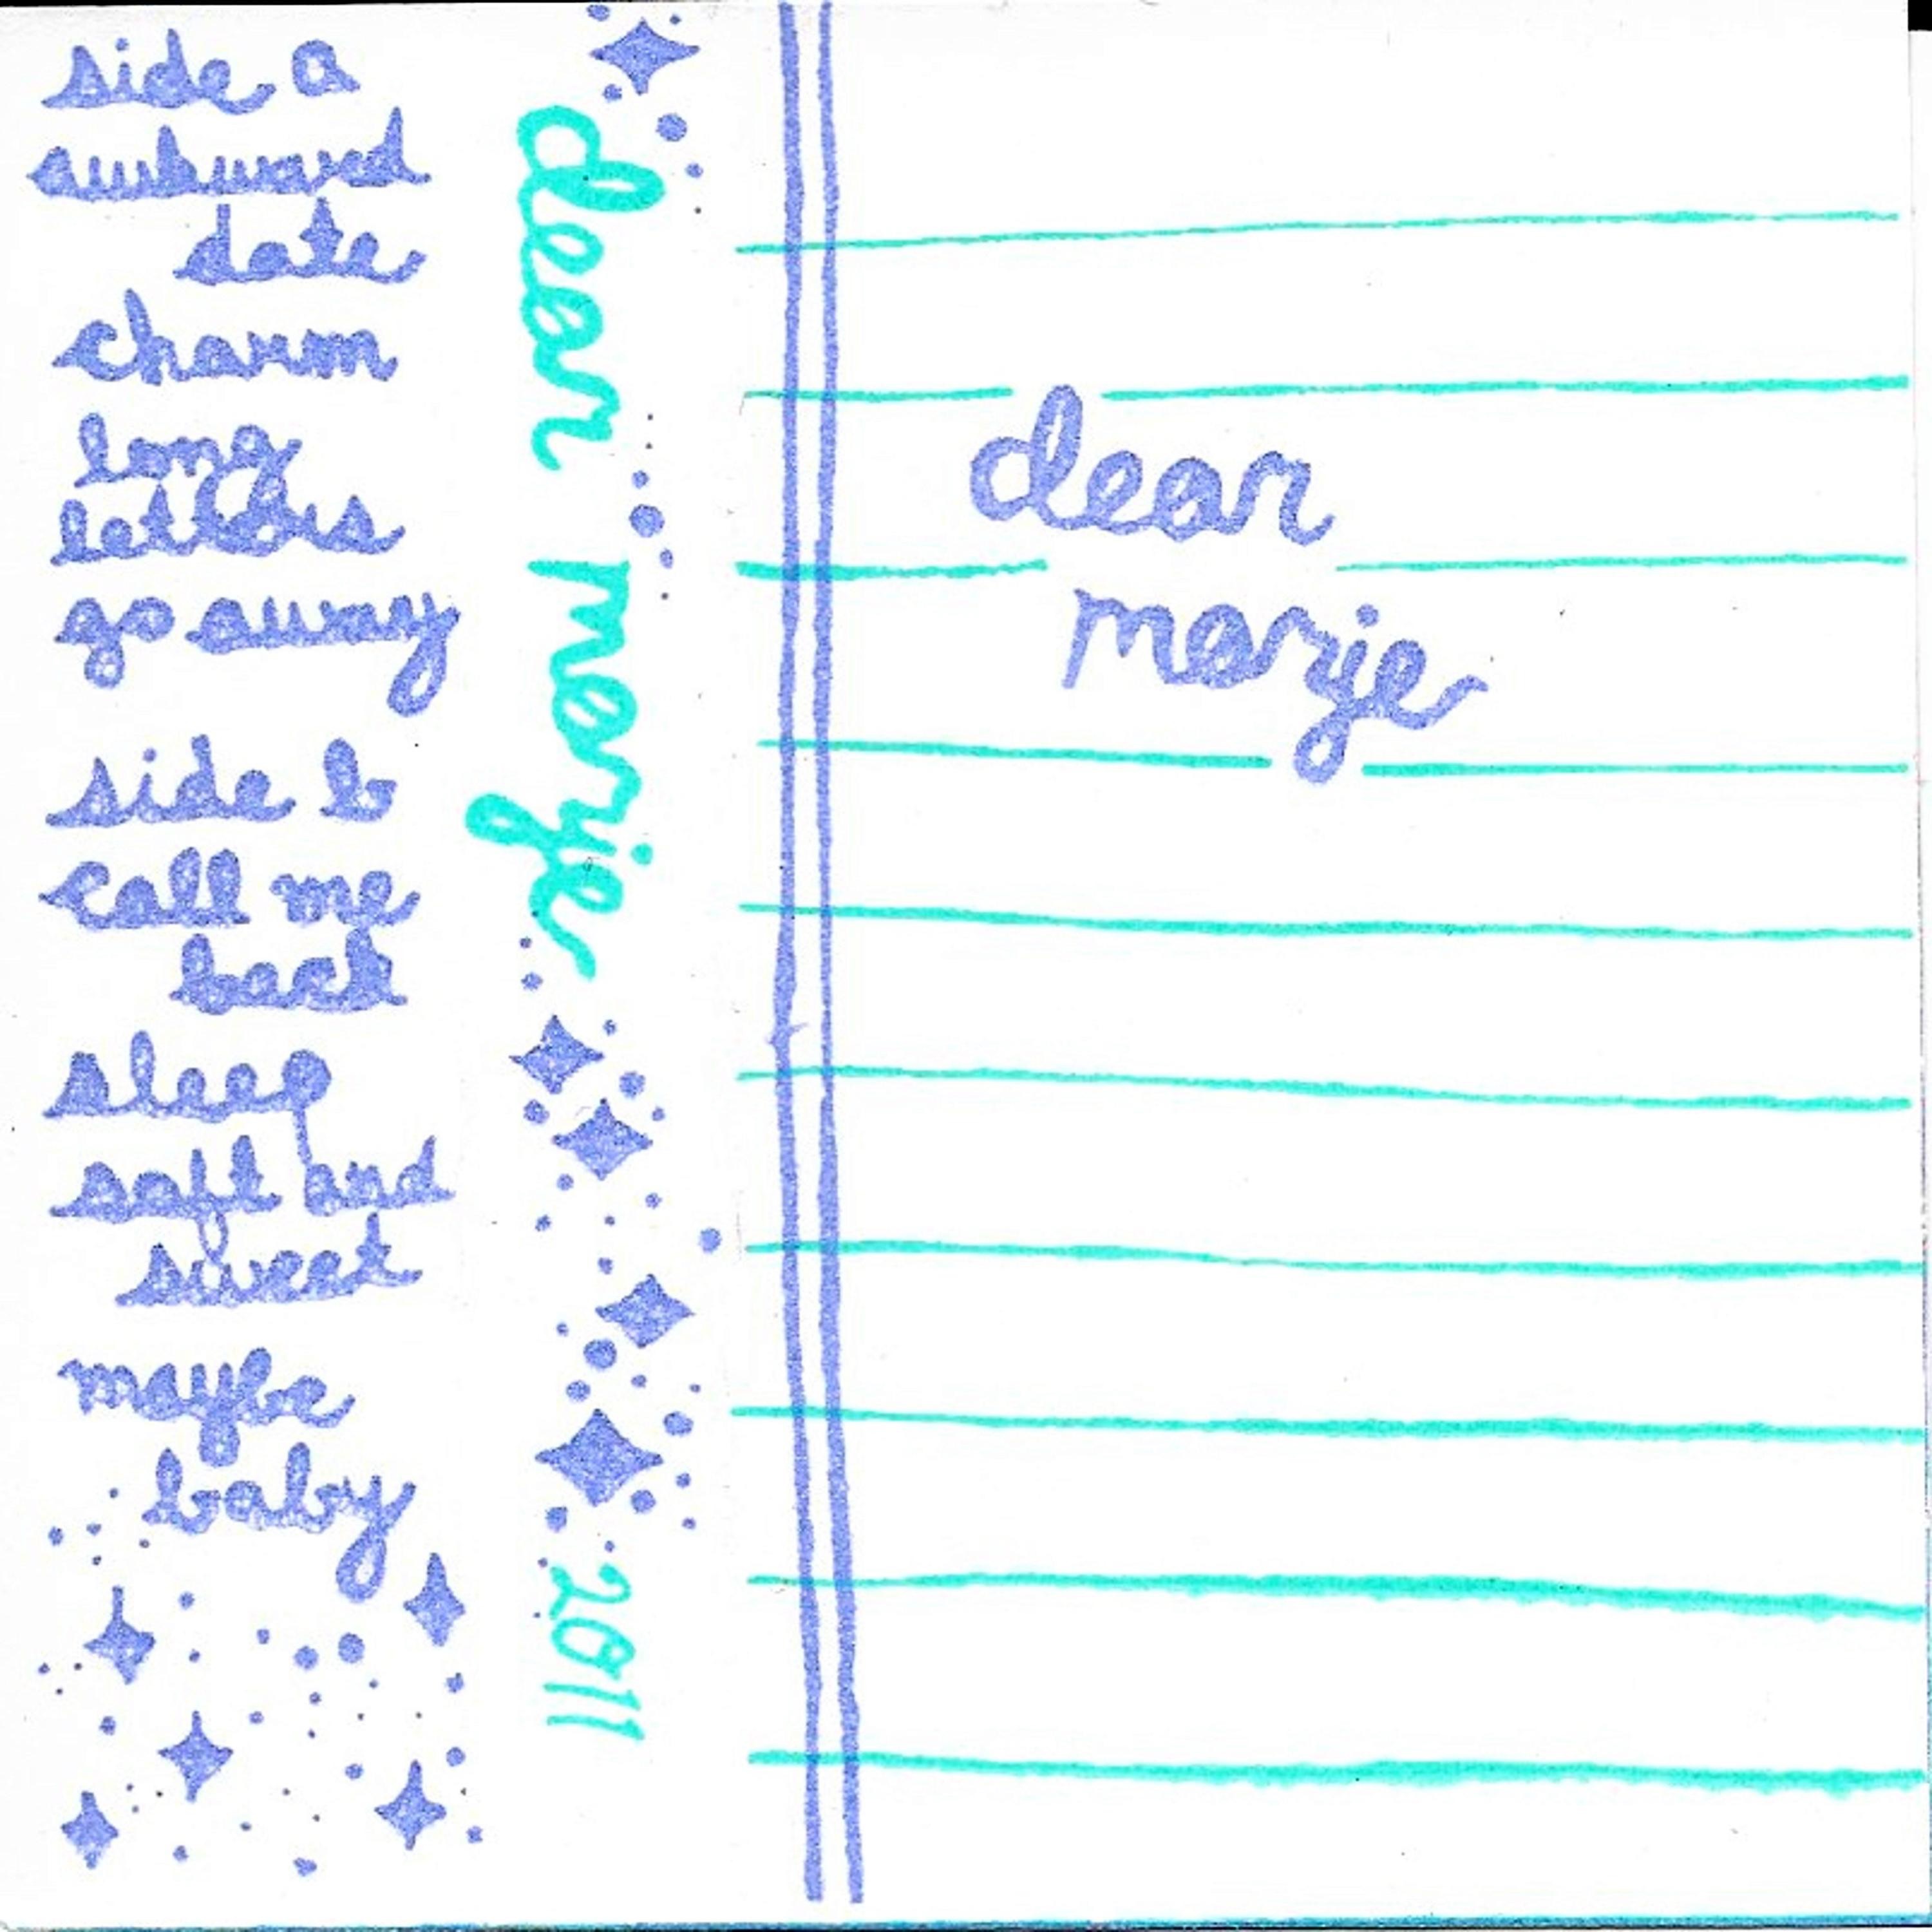 side a
awkward
date
charm
long
letters
go away
side b
call me
back
sleep
soft and
sweet
maybe
baby
dear marje 2011
dear
marje